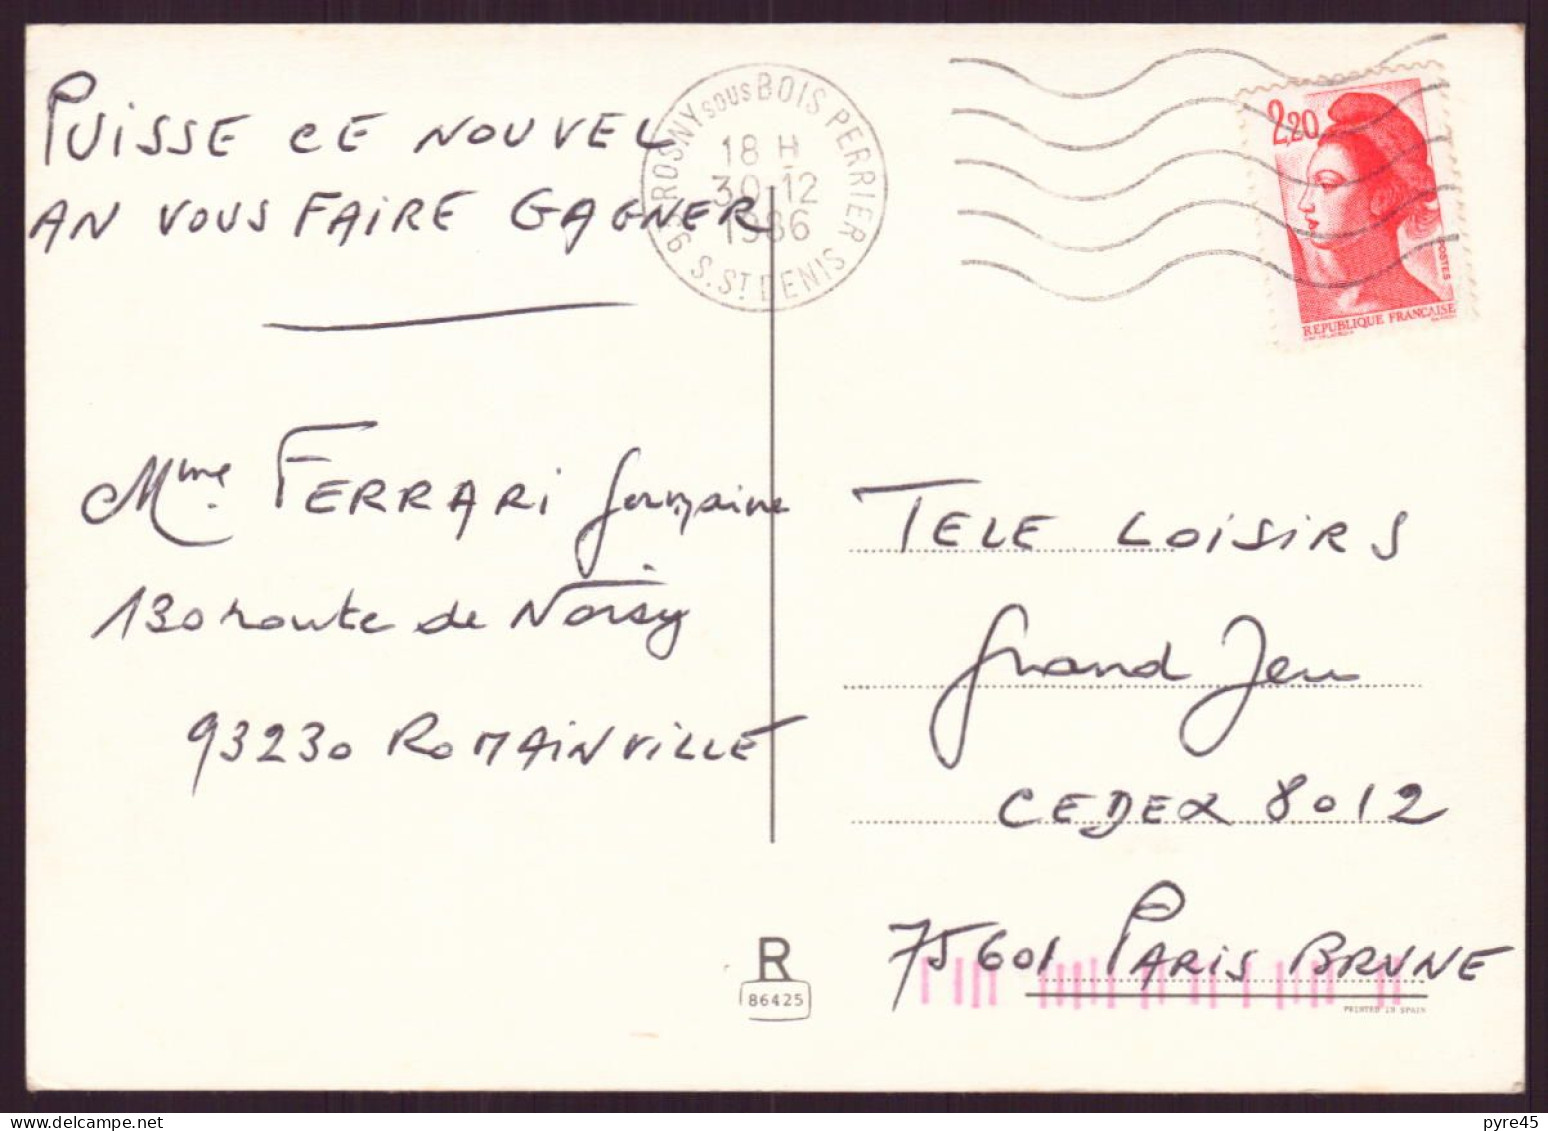 PUISSE CE NOUVEL
AN VOUS FAIRE GAGNER
Mme FERRARI Germaine
130 route de Noisy
93230 ROMAINVILLE
93 ROSNY sous BOIS PERRIER
18 H
30-12
1986
S. ST DENIS
2,20
POSTES
REPUBLIQUE FRANÇAISE
TELE LOISIRS
Grand Jeu
CEDEX 8012
75601 PARIS BRUNE
R
86425
PRINTED IN SPAIN
pyre45